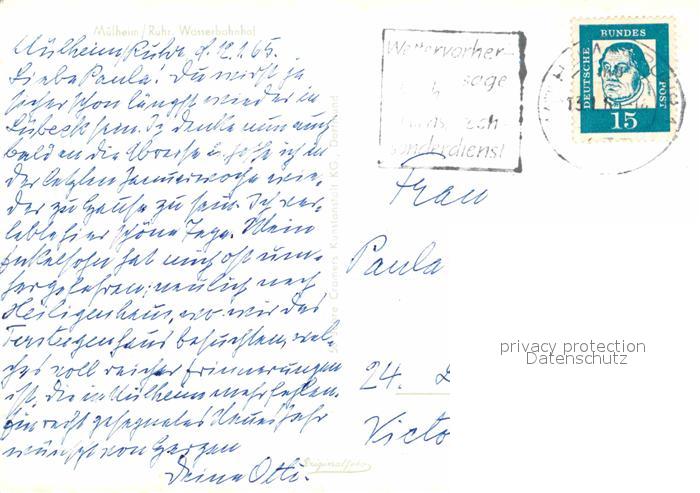 Mülheim/Ruhr. Wasserbahnhof
Mülheim Ruhr d. 12.1.65.
Liebe Paula! Du wirst ja
sicher schon längst wieder in
Lübeck sein. Ich denke nun auch
bald an die Abreise u. hoffe ich in
der letzten Januarwoche wie-
der zu Hause zu sein. Ich ver-
lebte hier schöne Tage. Mein
Enkelsohn hat mich oft um-
hergefahren; neulich nach
Heiligenhaus, wo wir das
Tersteegenhaus besuchten, wel-
ches voll reicher Erinnerungen
ist, die in Mülheim mehr fehlen.
Ein recht gesegnetes Neues Jahr
wünscht von Herzen
Deine
Originalfoto
Cramers Kunstanstalt KG., Dortmund
Wettervorher-
sage
sonderdienst
DEUTSCHE
BUNDES
POST
15
Frau
Paula
24.
Victo
privacy protection
Datenschutz